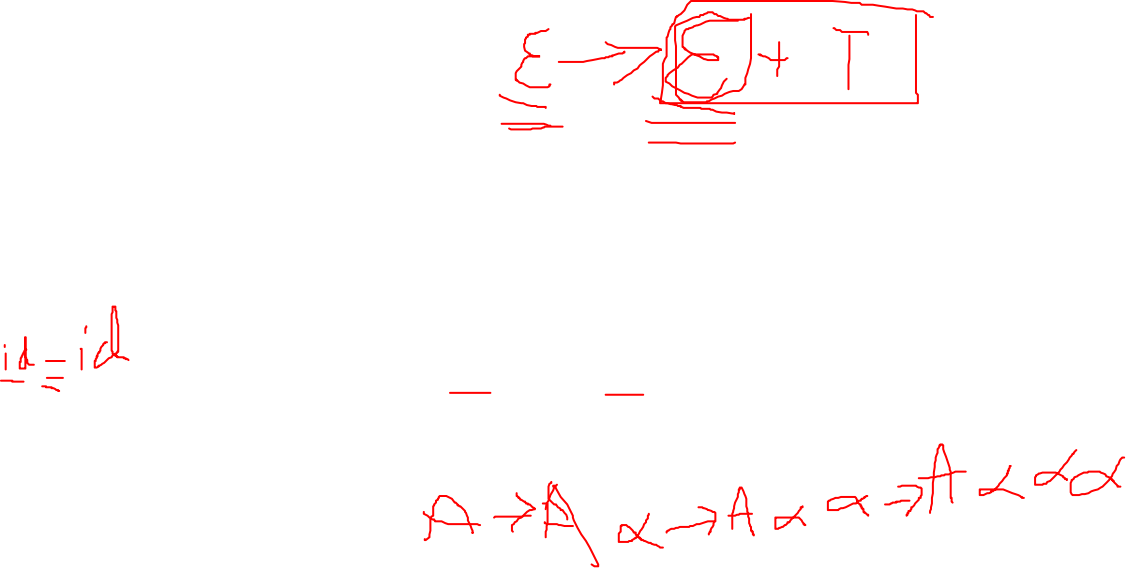 E → E + T
id = id
A → A α → A α α → A α α α